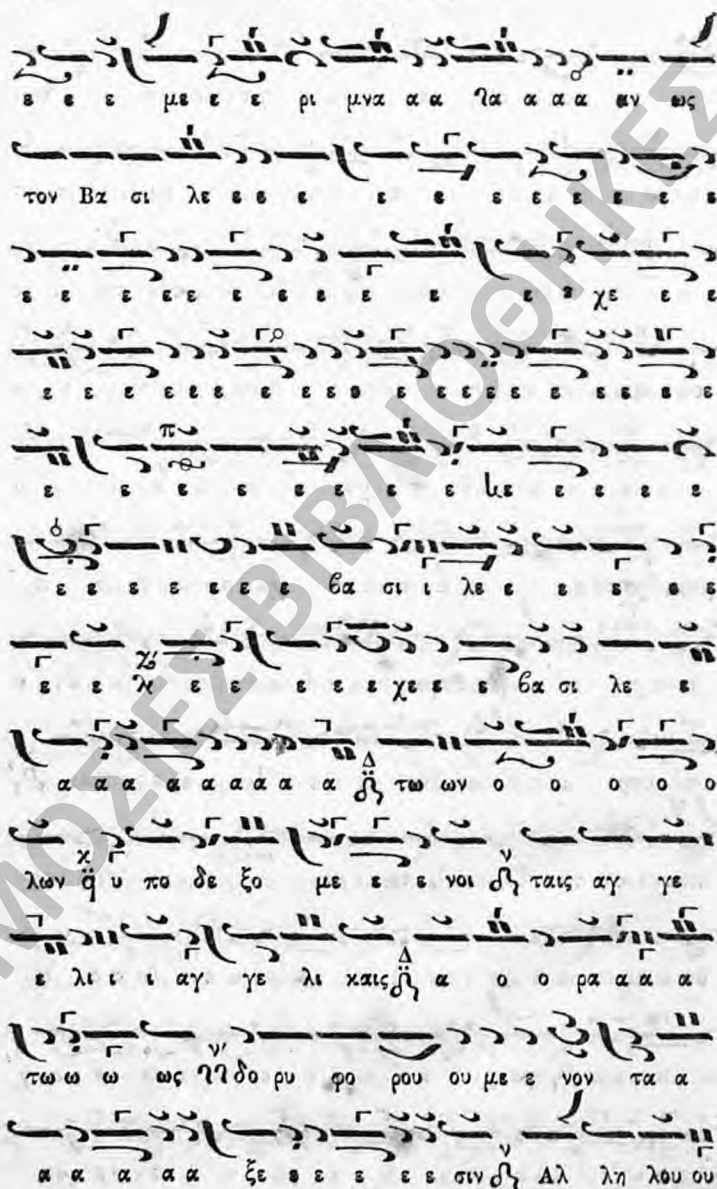 ε ε ε με ε ε ρι μνα α α λα α α α αν ως
τον Βα σι λε ε ε ε ε ε ε ε ε ε ε ε ε
ε ε ε ε ε ε ε ε ε ε ε ε χε ε ε
ε ε ε ε ε ε ε ε ε ε ε ε ε ε ε ε ε ε ε ε
ε ε ε ε ε ε ε ε ε ε ε ε ε
ε ε ε ε ε ε ε ε βα σι ι λε ε ε ε ε ε
ε ε λ ε ε ε ε ε χε ε ε βα σι λε ε
α α α α α α α α α Δ τω ων ο ο ο ο ο
λων υ πο δε ξο με ε ε νοι ν ταις αγ γε
ε λι ι ι αγ γε λι καις Δ α ο ο ρα α α α
τω ω ω ως ν' δο ρυ φο ρου ου με ε νον τα α
α α α α α ξε ε ε ε ε ε ε σιν ν Αλ λη λου ου
ΜΟΣΙΕΣ ΒΙΒΛΙΟΘΗΚΕΣ